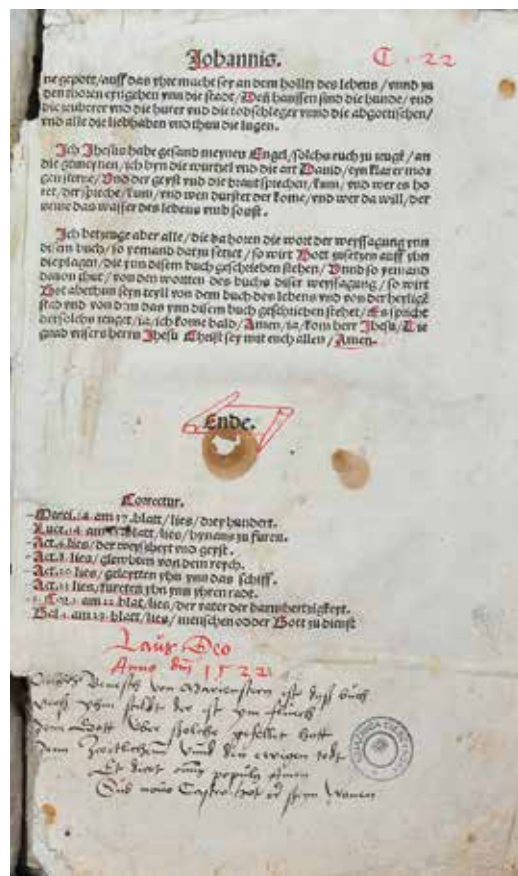 Johannis.
C. 22
ne gepott/auff das yhre macht sey an dem holtz des lebens/vnnd zu
den thoren eyngehen ynn die stadt/Denn haussen sind die hunde/vnd
die zeuberer vnd die hurer vnd die todschleger vnnd die abgottischen/
vnd alle die liebhaben vnd thun die lugen.
Ich Jhesus habe gesand meynen Engel/solchs euch zu zeugẽ/an
die gemeynen/ich byn die wurtzel vnd die art Dauid/eyn klarer mor
gensterne/Vnd der geyst vnd die braut sprechen/kum/vnd wer es ho
ret/der spreche/kum/vnd wen durstet der kome/vnd wer da will/der
neme das wasser des lebens vmb sonst.
Ich betzeuge aber alle/die da horen die wort der weyssagung ynn
disem buch/so yemand dartzu setzet/so wirt Gott zusetzen auff yhn
die plagen/die ynn disem buch geschrieben stehen/Vnnd so yemand
dauon thut/von den wortten des buchs diser weyssagung/so wirt
Got abethun seyn teyll von dem buch des lebens vnd von der heyligẽ
stad vnd von dem das ynn disem buch geschrieben stehet/Es spricht
der solchs zeuget/ia/ich kome bald/Amen/ia/kom herr Jhesu/Die
gnad vnsers herrn Jhesu Christ sey mit euch allen/Amen.
Ende.
Correctur.
Marci. am 17. blatt/lies/drey hundert.
Luce. 14. am blatt/lies/hynaus zu furen.
Act. lies/der weysheyt vnd geyst.
Act. 8. lies/glewbten von dem reych.
Act. 10 lies/geleytten yhn ynn das schiff.
Act. lies/fureten yhn ynn yhren radt.
am blat/lies/der vater der barmhertzigkeyt.
Gal. am blat/lies/menschen odder Gott zu dienst
Laus Deo
Anno 1522
von Marienstern ist das buch
wers yhm stielt der ist
dem Gott
vnnd den ewigen todt
Et dicat omnis populus Amen